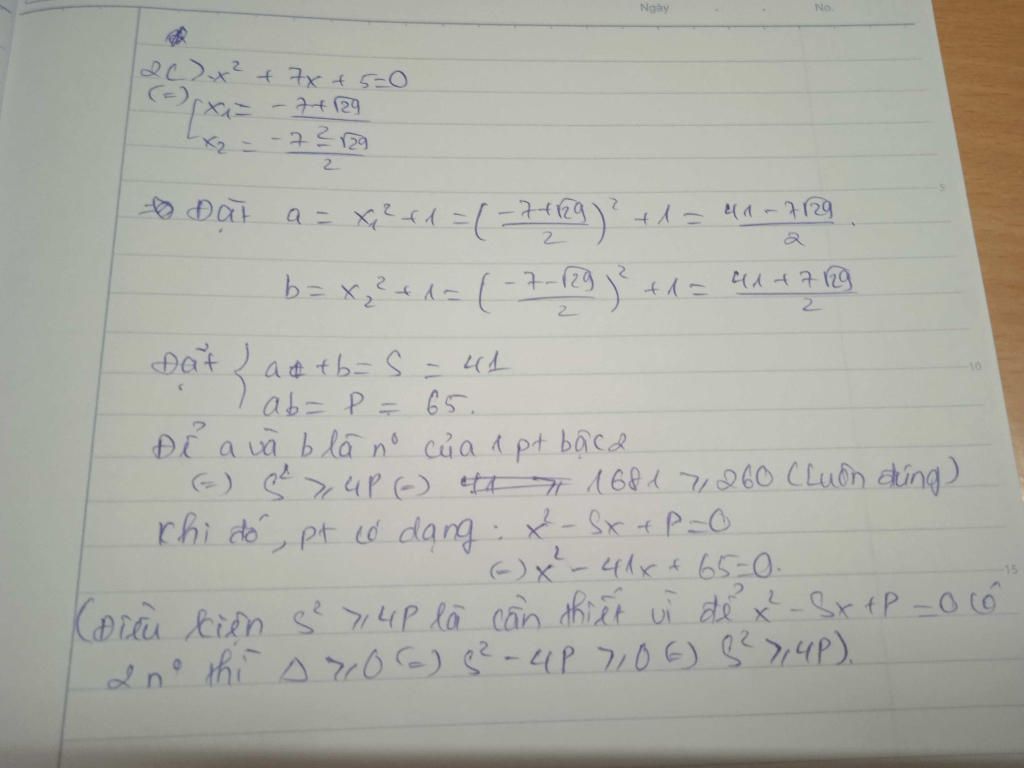 Ngày . . No.
2c) x² + 7x + 5 = 0
(=) [ x₁ = (-7+√29)/2
x₂ = (-7-√29)/2
=> Đặt a = x₁² + 1 = ((-7+√29)/2)² + 1 = (41-7√29)/2.
b = x₂² + 1 = ((-7-√29)/2)² + 1 = (41+7√29)/2
5
Đặt { a + b = S = 41
10
ab = P = 65.
Để a và b là n° của 1 pt bậc 2
(=) S² ≥ 4P (=) 1681 ≥ 260 (Luôn đúng)
Khi đó, pt có dạng: x² - Sx + P = 0
(=) x² - 41x + 65 = 0.
15
(Điều kiện S² ≥ 4P là cần thiết vì để x² - Sx + P = 0 có
2 n° thì Δ ≥ 0 (=) S² - 4P ≥ 0 (=) S² ≥ 4P).